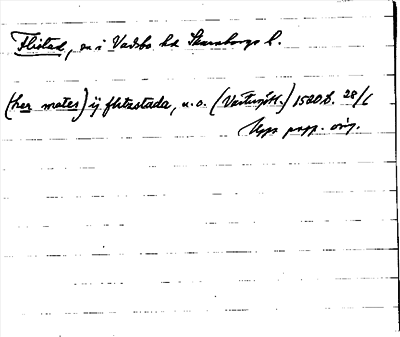 Flistad, sn i Vadsbo hd Skaraborgs l.
(her mates) ij flitzstada, u.o. (Västergötl.) 1520 d. 28/1
Upps papp. orig.